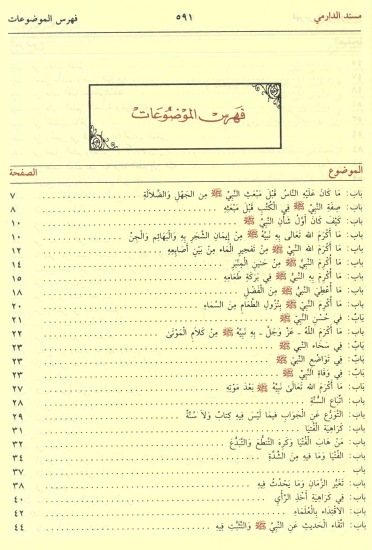 مسند الدارمي ٥٩١ فهرس الموضوعات
فهرس الموضوعات
الموضوع الصفحة
باب: مَا كَانَ عَلَيْهِ النَّاسُ قَبْلَ مَبْعَثِ النَّبِيِّ ﷺ مِنَ الجَهْلِ وَالضَّلَالَةِ ٧
باب: صِفَةِ النَّبِيِّ ﷺ فِي الْكُتُبِ قَبْلَ مَبْعَثِهِ ٨
باب: كَيْفَ كَانَ أَوَّلُ شَأْنِ النَّبِيِّ ﷺ ١٠
باب: مَا أَكْرَمَ اللهُ تَعَالَى بِهِ نَبِيَّهُ ﷺ مِنْ إِيمَانِ الشَّجَرِ بِهِ وَالْبَهَائِمِ وَالْجِنِّ ١٠
باب: مَا أَكْرَمَ اللهُ النَّبِيَّ ﷺ مِنْ تَفْجِيرِ الْمَاءِ مِنْ بَيْنِ أَصَابِعِهِ ١٢
باب: مَا أُكْرِمَ النَّبِيُّ ﷺ مِنْ حَنِينِ الْمِنْبَرِ ١٤
باب: مَا أُكْرِمَ بِهِ النَّبِيُّ ﷺ فِي بَرَكَةِ طَعَامِهِ ١٥
باب: مَا أُعْطِيَ النَّبِيُّ ﷺ مِنَ الْفَضْلِ ١٨
باب: مَا أُكْرِمَ النَّبِيُّ ﷺ بِنُزُولِ الطَّعَامِ مِنَ السَّمَاءِ ٢٠
بَابٌ: فِي حُسْنِ النَّبِيِّ ﷺ ٢١
باب: مَا أَكْرَمَ اللهُ - عَزَّ وَجَلَّ - بِهِ نَبِيَّهُ ﷺ مِنْ كَلَامِ الْمَوْتَىٰ ٢٢
بَابٌ: فِي سَخَاءِ النبي ﷺ ٢٣
بَابٌ: فِي تَوَاضُعِ النَّبِيِّ ﷺ ٢٣
بَابٌ: فِي وَفَاةِ النَّبِيِّ ﷺ ٢٣
باب: مَا أَكْرَمَ اللهُ تَعَالَىٰ نَبِيَّهُ ﷺ بَعْدَ مَوْتِهِ ٢٧
باب: اتِّبَاعِ السُّنَّةِ ٢٨
باب: التَّوَرُّعِ عَنِ الْجَوَابِ فِيمَا لَيْسَ فِيهِ كِتَابٌ وَلَا سُنَّةٌ ٢٩
باب: كَرَاهِيَةِ الْفُتْيَا ٣١
باب: مَنْ هَابَ الْفُتْيَا وَكَرِهَ التَّنَطُّعَ وَالتَّبَدُّعَ ٣٢
باب: الفُتْيَا وَمَا فِيهِ مِنَ الشِّدَّةِ ٣٤
باب ٣٧
باب: تَغَيُّرِ الزَّمَانِ وَمَا يَحْدُثُ فِيهِ ٣٨
بَابٌ: فِي كَرَاهِيَةِ أَخْذِ الرَّأْيِ ٤٠
باب: الِاقْتِدَاءِ بِالْعُلَمَاءِ ٤٢
باب: اتِّقَاءِ الْحَدِيثِ عَنِ النَّبِيِّ ﷺ وَالتَّثَبُّتِ فِيهِ ٤٤